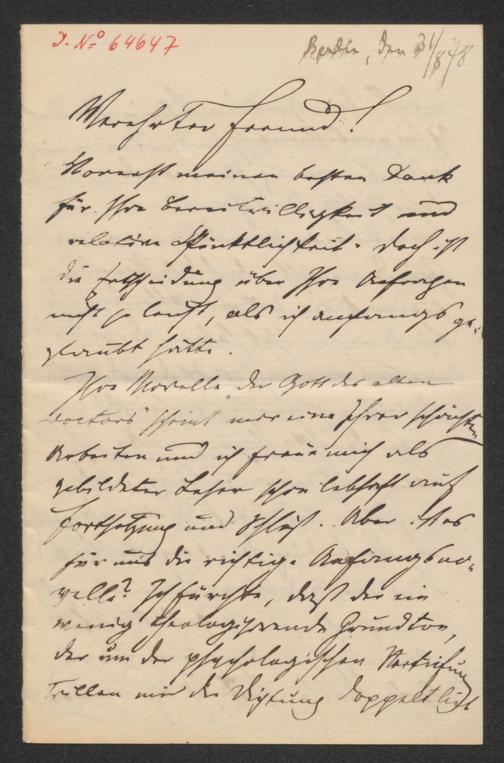 J. No 64647
Berlin, den 31/8 78
Verehrter Freund!
Vorerst meinen besten Dank
für Ihre Bereitwilligkeit und
relative Pünktlichkeit. Doch ist
die Entscheidung über Ihre Anfragen
nicht so leicht, als ich anfangs ge-
glaubt hatte.
Ihre Novelle "Der Gott des alten
Doctors" scheint mir eine Ihrer schönsten
Arbeiten und ich freue mich als
gebildeter Leser schon lebhaft auf
Fortsetzung und Schluß. Aber ist es
für uns die richtige Anfangsno-
velle? Ich fürchte, daß der ein
wenig theologisirende Grundton,
der um der psychologischen Vertiefung
willen mir die Dichtung doppelt lieb